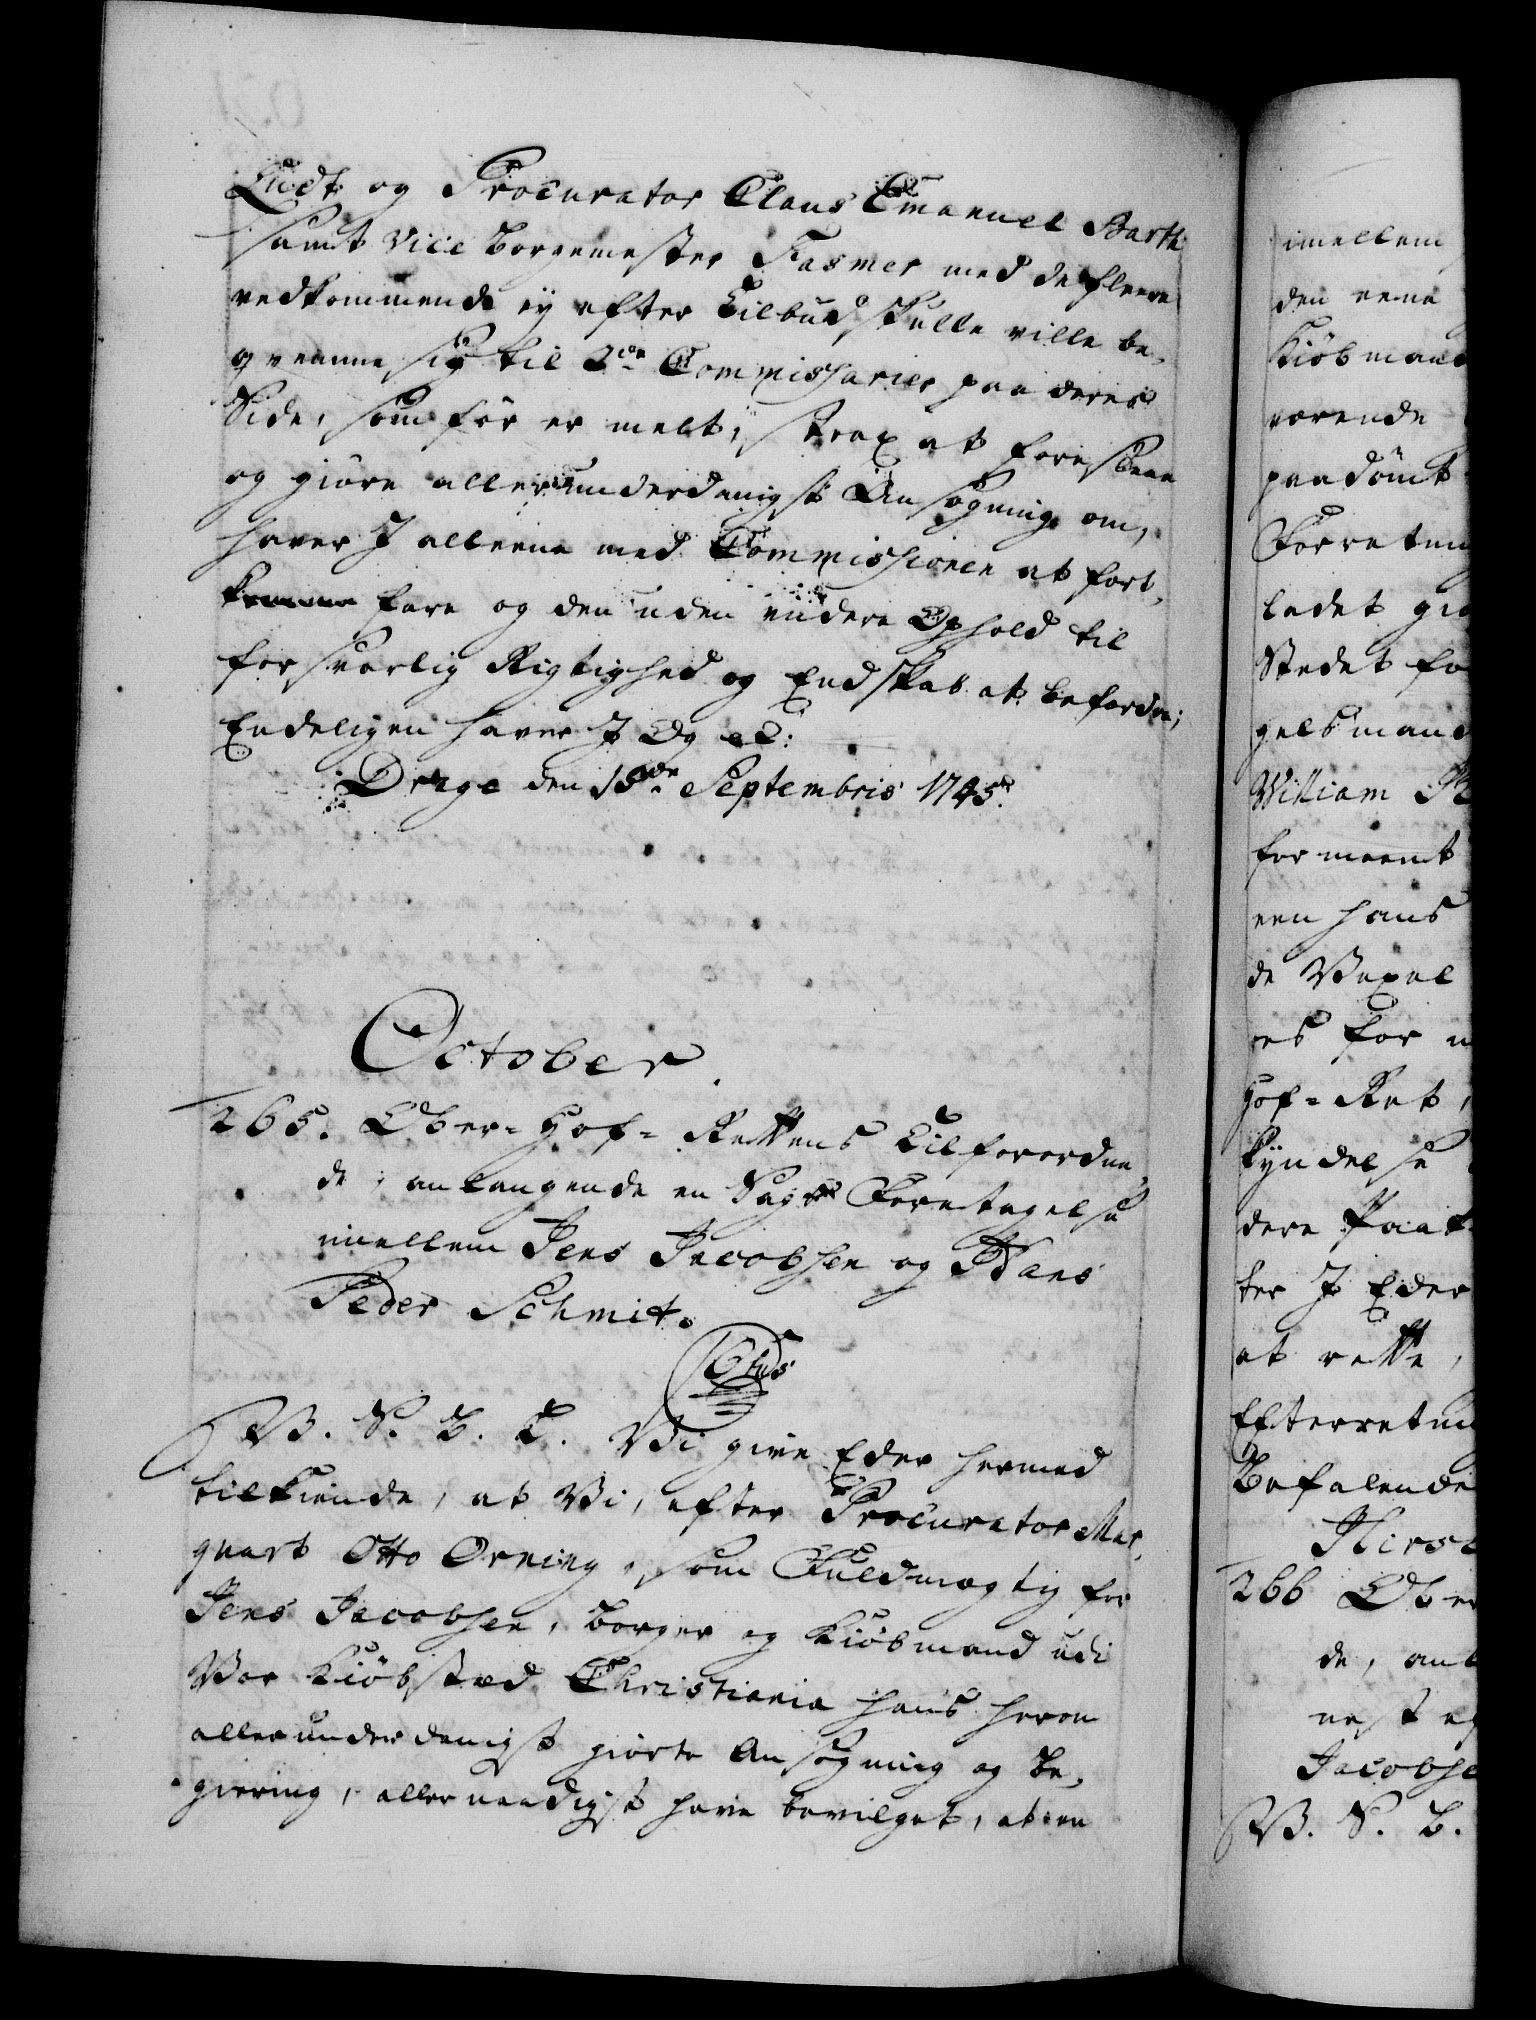 Ludt og Procurator Claus Emanuel Barth
samt Vice Borgemester Fasmer med de fleere
vedkommende ey efter Tilbud skulle ville be-
qvemme sig til 2de Commissarier paa deres
Side, som før er melt, strax at foreslaae
og giøre allerunderdanigst Ansøgning om,
haver I alleene med Commissionen at fort-
fare og den uden videre Ophold til
forsvarlig Rigtighed og Endskab at befordre;
Endeligen haver I Og etc:
Drage den 15de Septembris 1745.
October.
265. Ober-Hof-Rettens Tilforordne-
de, anlangende en Sags Foretagelse
imellem Jens Jacobsen og Hans
Peder Schmit.
C6tus
V. S. B. T. Vi give Eder hermed
tilkiende, at Vi, efter Procurator Mar-
qvart Otto Orning, som Fuldmægtig for
Jens Jacobsen, Borger og Kiøbmand udi
Vor Kiøbstæd Christiania hans herom
allerunderdanigst giorte Ansøgning og Be-
giering, allernaadigst have bevilget, at en
imellem
den eene
Kiøbmand
værende
paadømt
Forretning
ladet
Stedet
William
formeent
een hans
de Vexel
es for
Hof-Ret,
kyndelse
dere Paat
ter I Eder
at rette,
Efterretning
Befalende
Hirsc
266 Ober
de, anl
nest
Jacobse
V. S. B.